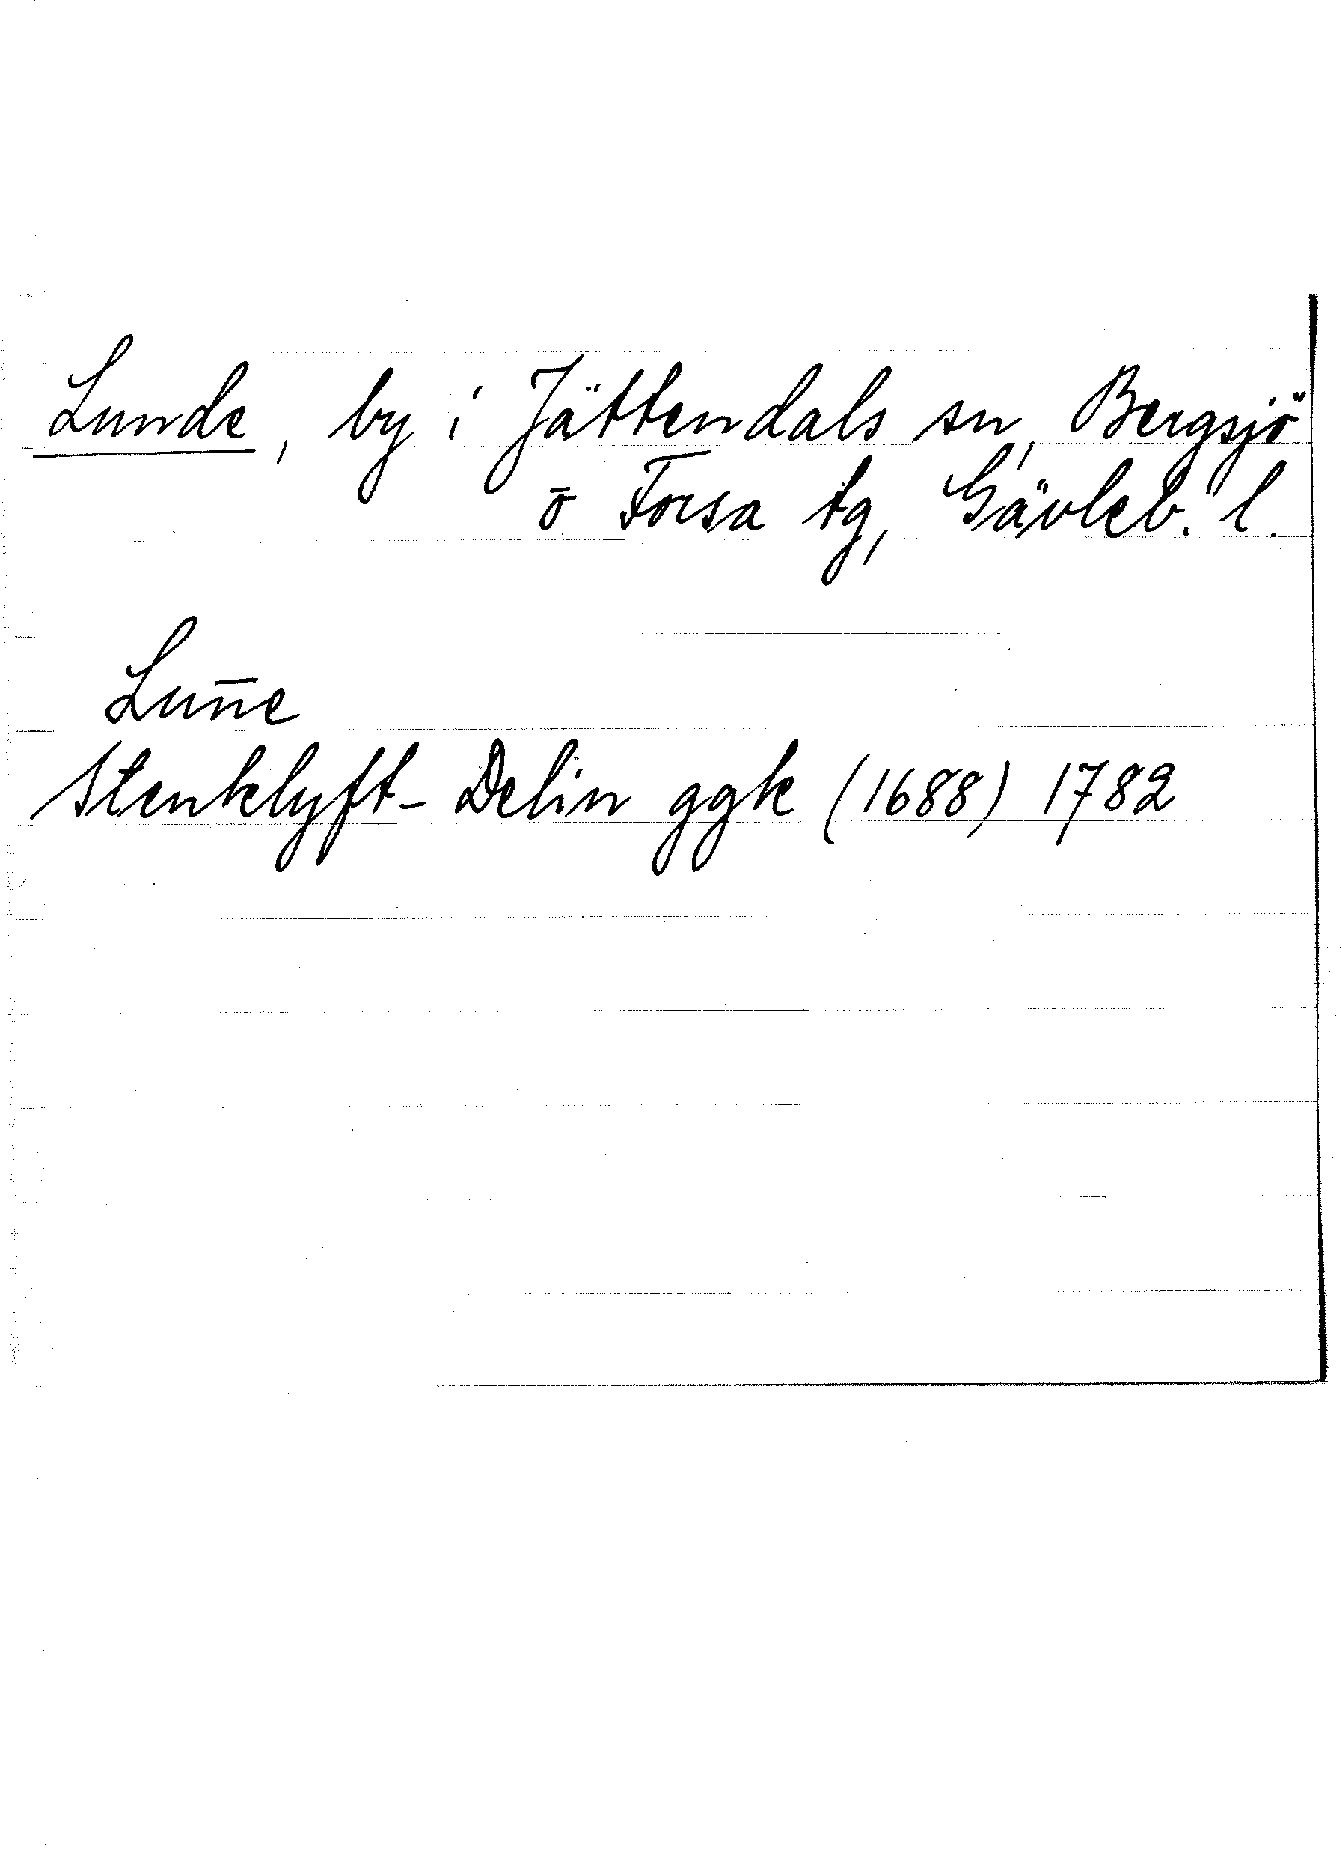 Lunde, by i Jättendals sn, Bergsjö
o̅ Forsa tg, Gävleb. l.
Lun̅e
Stenklyft- Delin ggk (1688) 1782